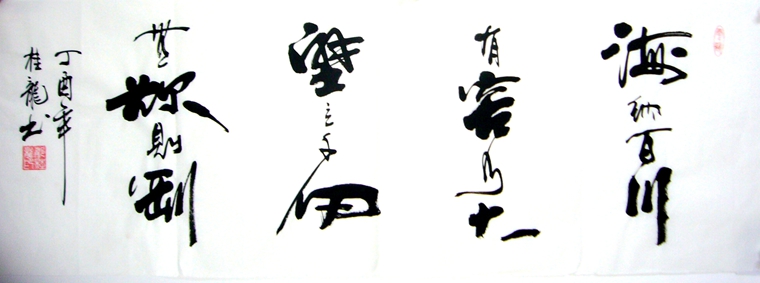 海納百川
有容乃大
壁立千仞
無欲則剛
丁酉年
桂龍书